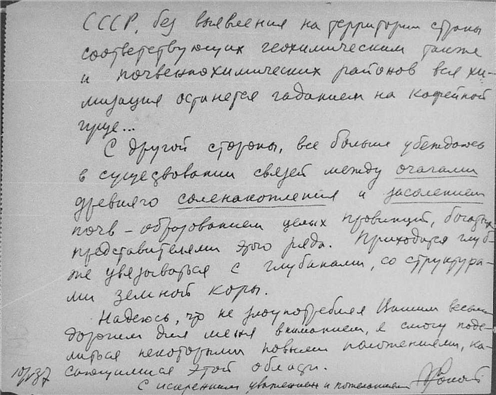 СССР, без выявления на территории страны
соответствующих геохимическим также
и почвеннохимических районов вся хи-
мизация останется гаданием на кофейной
гуще...
С другой стороны, все больше убеждаюсь
в существовании связей между очагами
древнего соленакопления и засолением
почв – образованием целых провинций, богатых
представителями этого ряда. Приходится глуб-
же увязываться с глубинами, со структура-
ми земной коры.
Надеюсь, что не злоупотребляя Вашим весьма
дорогим для меня вниманием, я смогу поде-
литься некоторыми новыми положениями, ка-
сающимися этой области.
С искренним уважением и пожеланием